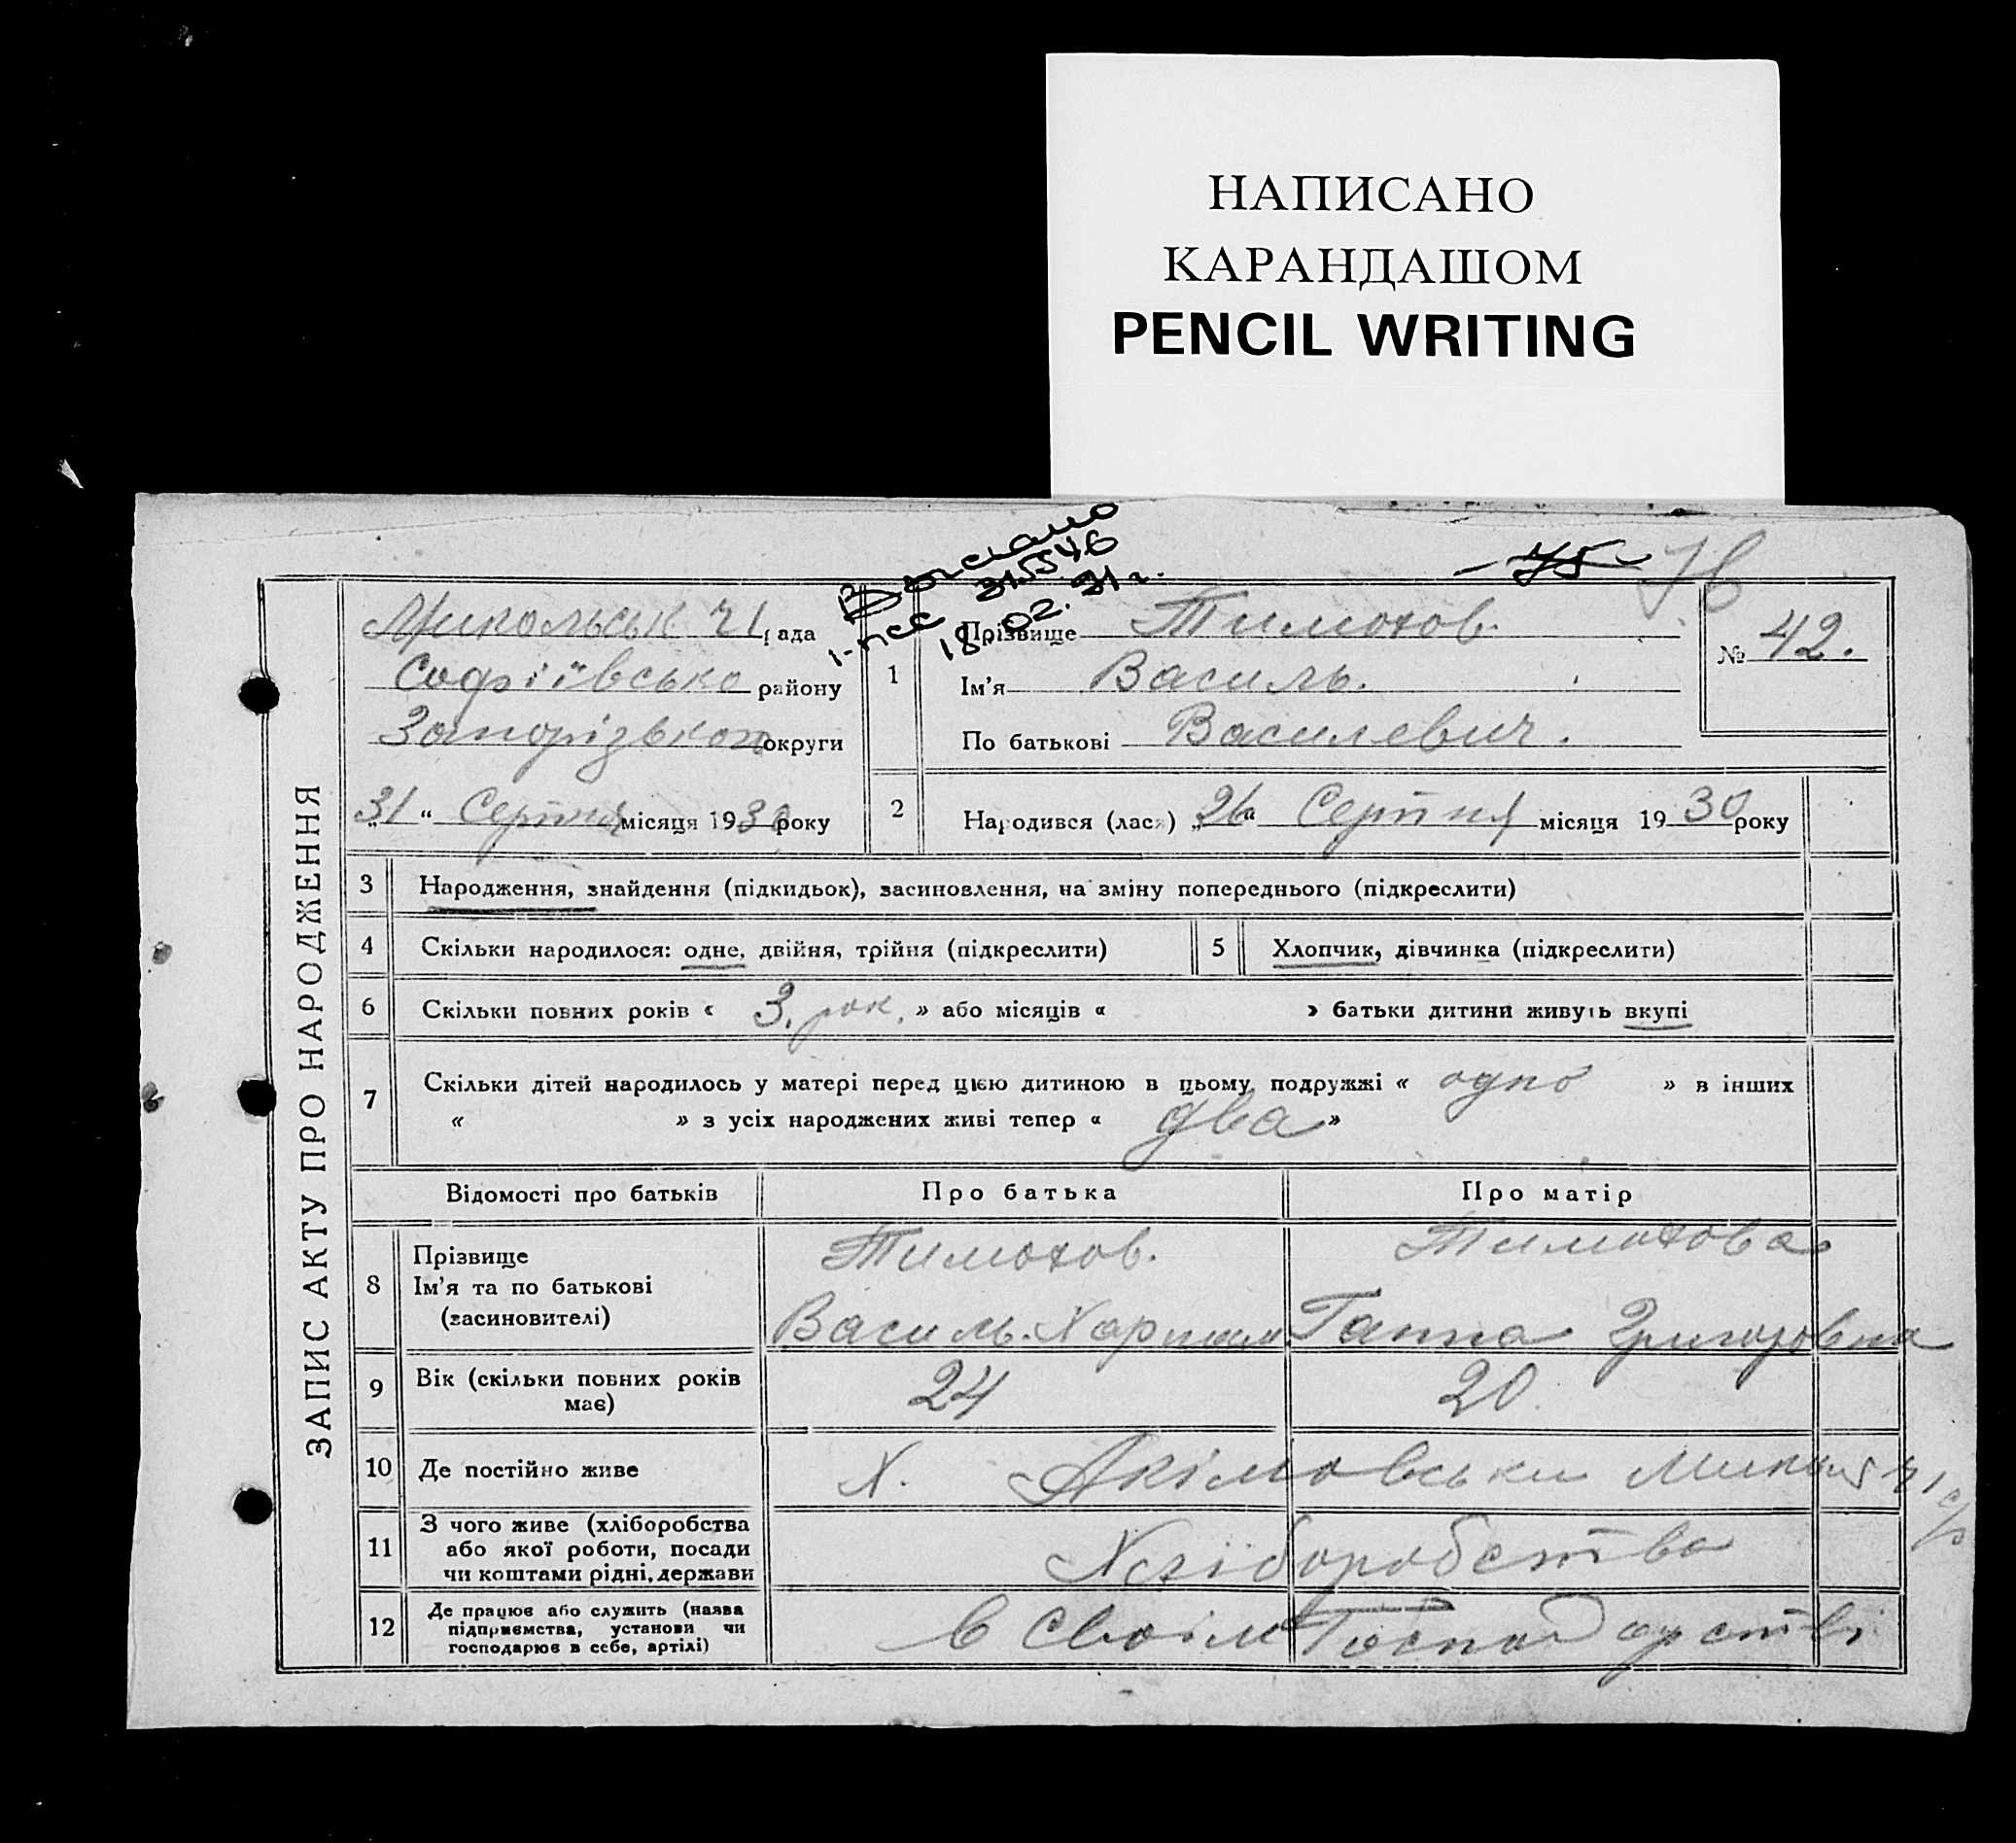 НАПИСАНО
КАРАНДАШОМ
PENCIL WRITING
Выслано
1-ПСС 315546
18.02. 91 г.
75
76
ЗАПИС АКТУ ПРО НАРОДЖЕННЯ
Микольськ ч1 рада
Софіївсько району
Запорізької округи
„31“ Серпня місяця 1930 року
1
Прізвище Тимохов.
Ім'я Василь.
По батькові Василевич.
№ 42.
2 Народився (лася) „26“ Серпня місяця 1930 року
3 Народження, знайдення (підкидьок), засиновлення, на зміну попереднього (підкреслити)
4 Скільки народилося: одне, двійня, трійня (підкреслити) 5 Хлопчик, дівчинка (підкреслити)
6 Скільки повних років « 3. рок. » або місяців « » батьки дитини живуть вкупі
7 Скільки дітей народилось у матері перед цією дитиною в цьому подружжі « одно » в інших
« » з усіх народжених живі тепер « два »
Відомості про батьків Про батька Про матір
8 Прізвище Тимохов. Тимохова
Ім'я та по батькові
(засиновителі) Василь. Харит Ганна Григоровна
9 Вік (скільки повних років має) 24 20.
10 Де постійно живе Х. Акімовськи с/р
11 З чого живе (хліборобства
або якої роботи, посади
чи коштами рідні, держави Хліборобства
12 Де працює або служить (назва
підприємства, установи чи
господарює в себе, артілі) в своім Господарстві